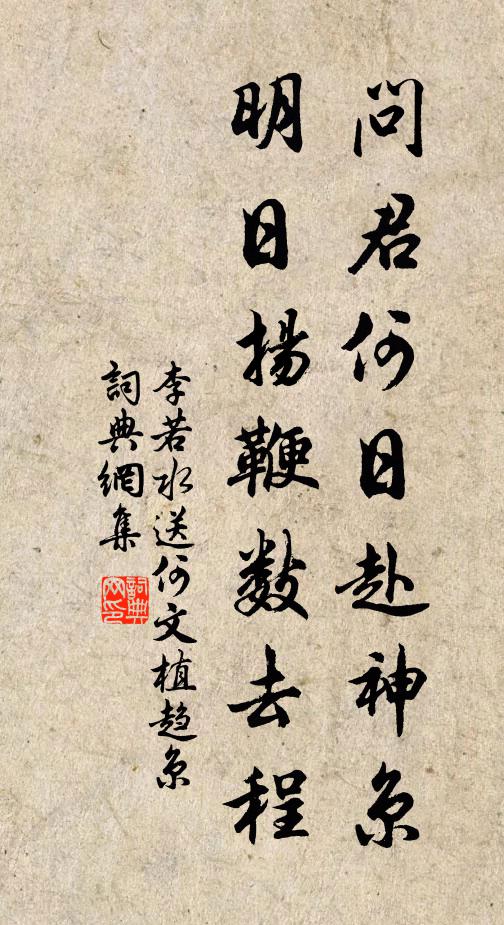 問君何日赴神京
明日揚鞭數去程
李若水送何文植趨京
詞典網集
詞典